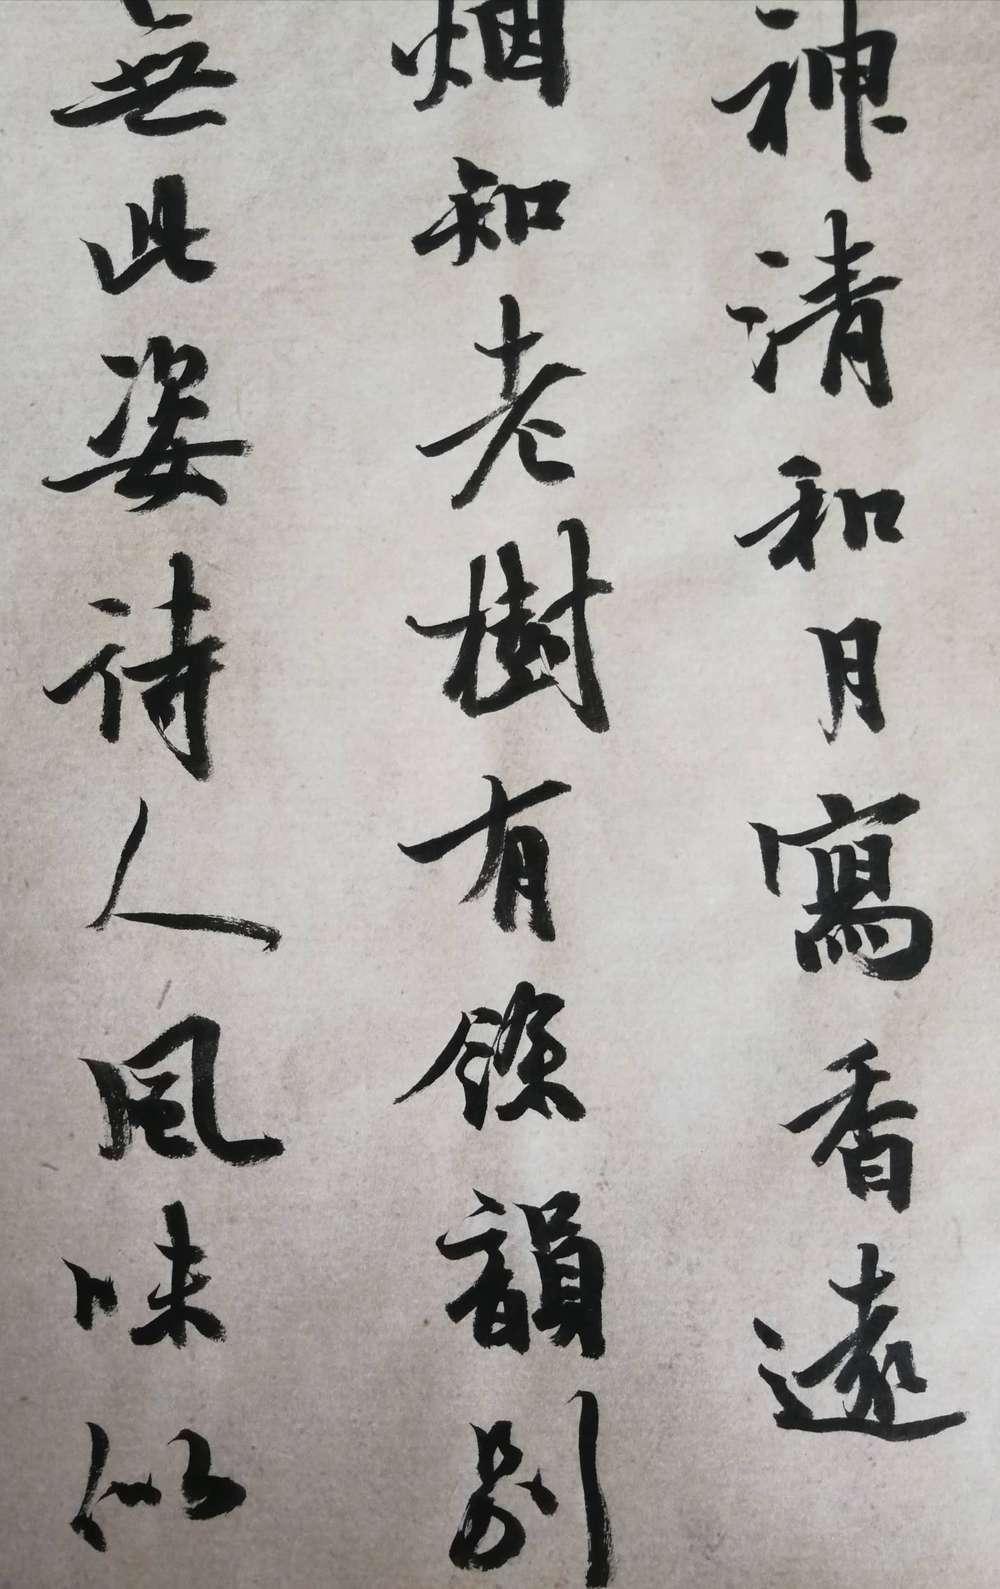 神清和月寫香遠
烟知老樹有餘韻別
無此姿待人風味似